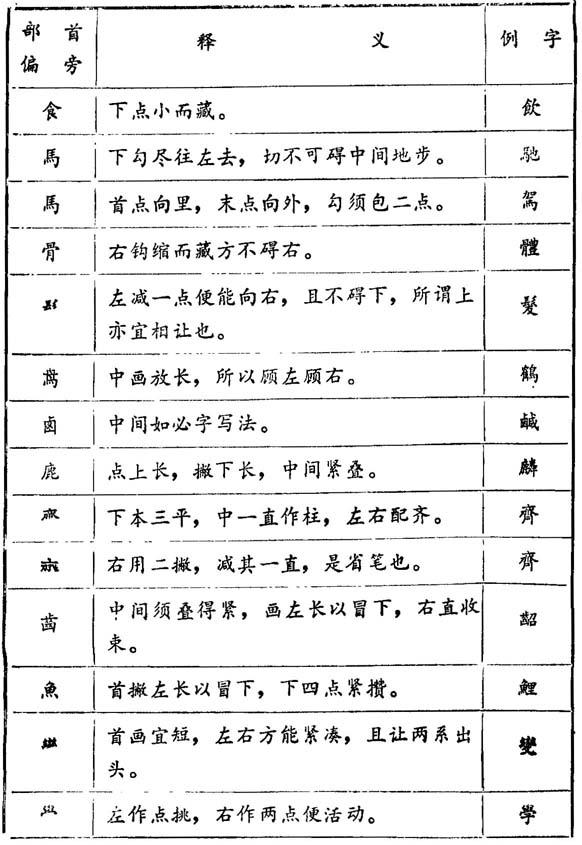 部首偏旁 释义 例字
食 下点小而藏。 飲
馬 下勾尽往左去，切不可碍中间地步。 馳
馬 首点向里，末点向外，勾须包二点。 駕
骨 右钩缩而藏方不碍右。 體
髟 左减一点便能向右，且不碍下，所谓上
亦宜相让也。 髮
中画放长，所以顾左顾右。 鶴
卤 中间如必字写法。 鹹
鹿 点上长，撇下长，中间紧叠。 麟
下本三平，中一直作柱，左右配齐。 齊
右用二撇，减其一直，是省笔也。 齊
中间须叠得紧，画左长以冒下，右直收
束。 齠
魚 首撇左长以冒下，下四点紧攒。 鯉
首画宜短，左右方能紧凑，且让两系出
头。 變
左作点挑，右作两点便活动。 學